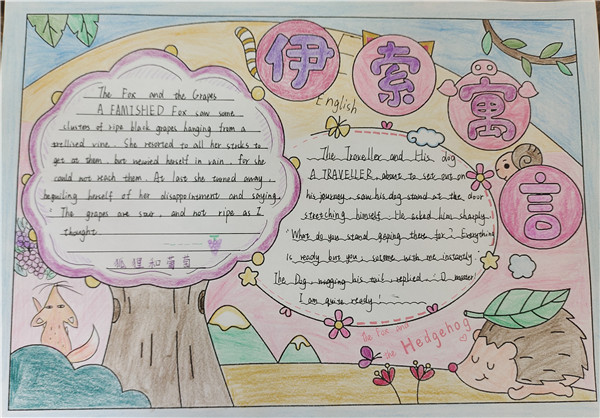 伊索寓言
English
The Fox and the Grapes
A FAMISHED Fox saw some
clusters of ripe black grapes hanging from a
trellised vine. She resorted to all her sticks to
get at them, but wearied herself in vain, for she
could not reach them. At last she turned away,
beguiling herself of her disappointment and saying.
" The grapes are sour, and not ripe as I
thought
狐狸和葡萄
The Traveller and His dog
A TRAVELLER about to set out on
his journey, saw his dog stand at the door
stretching himself. He asked him sharply:
"What do you stand gaping there for? Everything
is ready but you, so come with me instantly
The Dog wagging his tail replied: O, master!
I am quite ready!
The Fox and
the Hedgehog